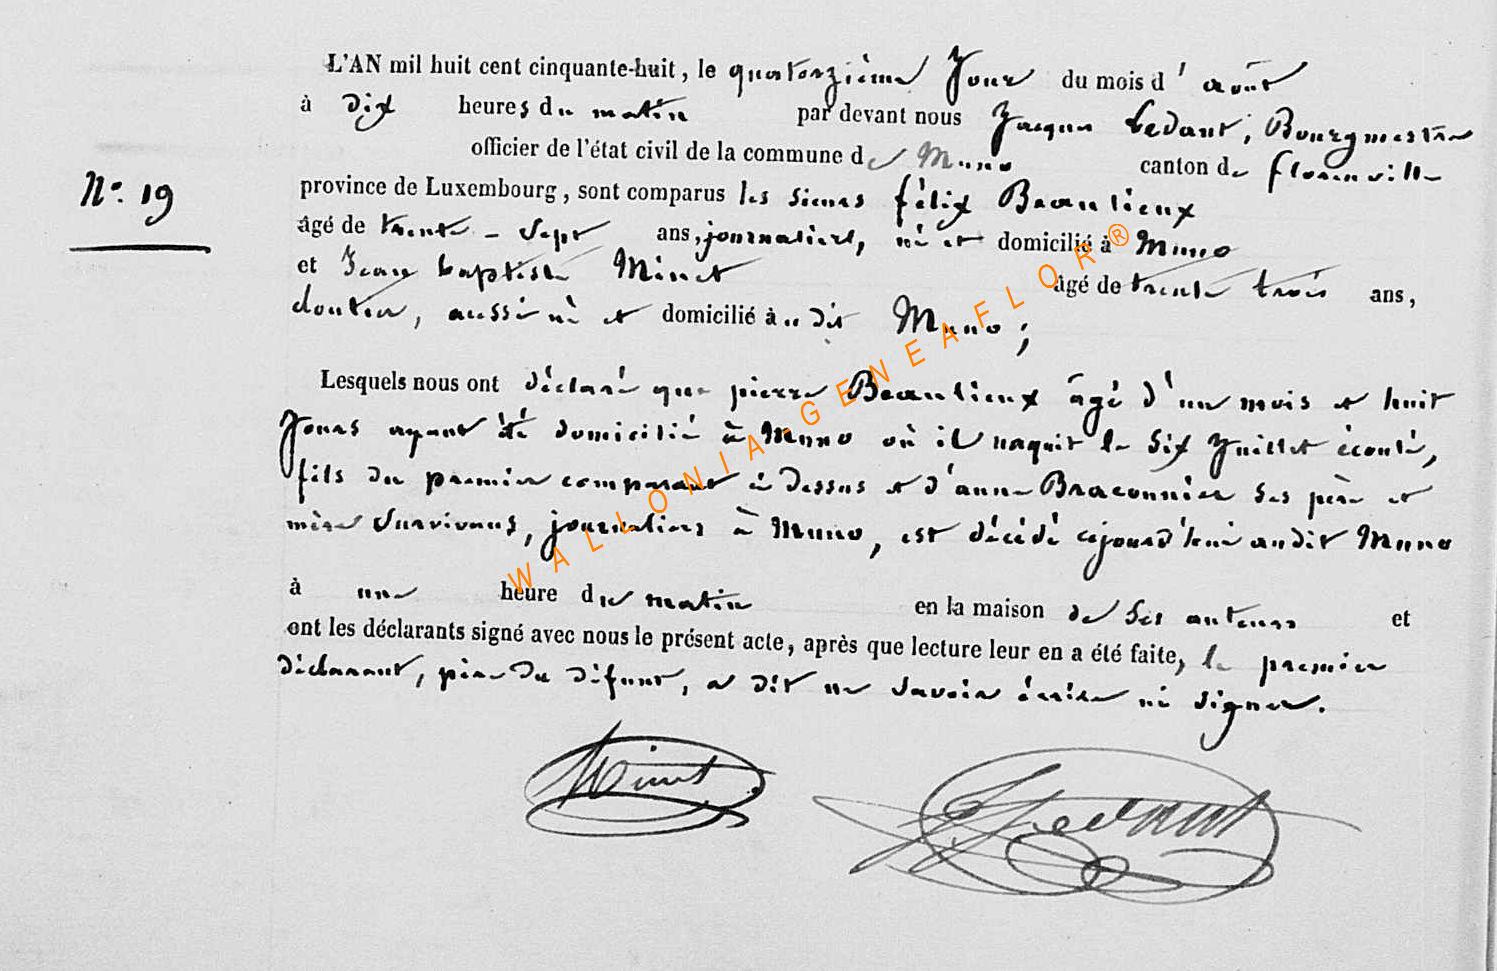 L'AN mil huit cent cinquante-huit, le quatorzième Jour du mois d'août
à dix heures du matin par devant nous Jacques Ledant, Bourgmestre
officier de l'état civil de la commune de Muno canton de florenville
N.° 19
province de Luxembourg, sont comparus les sieurs félix Beaulieux
âgé de trente-sept ans, journaliers, né et domicilié à Muno
et Jean baptiste Minet âgé de trente trois ans,
cloutier, aussi né et domicilié à u dit Muno;
Lesquels nous ont déclaré que pierre Beaulieux âgé d'un mois et huit
Jours ayant été domicilié à Muno où il naquit le Six Juillet écoulé,
fils du premier comparant ci dessus et d'anne Braconnier ses père et
mère Survivans, journaliers à Muno, est décédé cejourd'hui audit Muno
à une heure du matin en la maison de Ses auteurs et
ont les déclarants signé avec nous le présent acte, après que lecture leur en a été faite, le premier
déclarant, père du défunt, a dit ne Savoir écrire ni signer.
Minet
J Ledant
WALLONIA-GENEAFLOR®